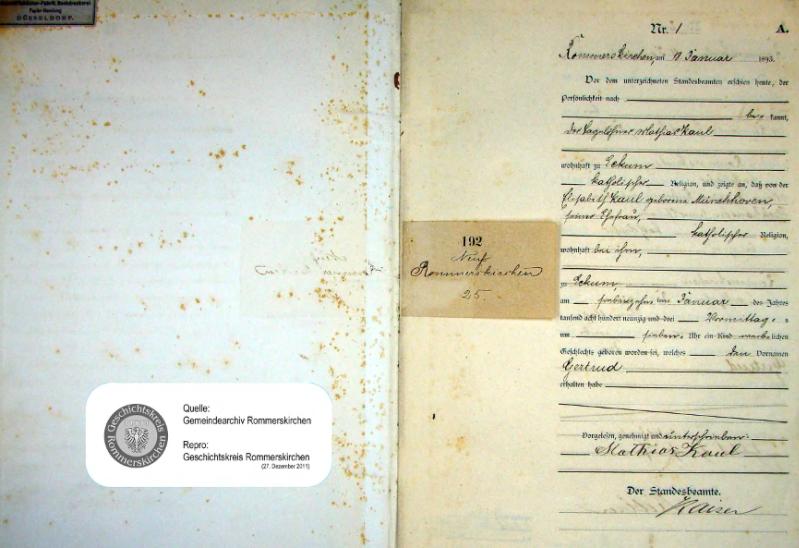 Papier-Handlung
DÜSSELDORF.
Quelle:
Gemeindearchiv Rommerskirchen
Geschichtskreis
Rommerskirchen
Repro:
Geschichtskreis Rommerskirchen
(27. Dezember 2011)
192
Neuß
Rommerskirchen
25.
Nr. 1
A.
Rommerskirchen, am Januar 1893.
Vor dem unterzeichneten Standesbeamten erschien heute, der
Persönlichkeit nach
be kannt,
der Tagelöhner Mathias Kaul
wohnhaft zu Eckum
katholischer Religion, und zeigte an, daß von der
Elisabeth Kaul geborene Münchhoven,
seiner Ehefrau,
katholischer Religion,
wohnhaft bei ihm,
zu Eckum,
am siebzehn ten Januar des Jahres
tausend acht hundert neunzig und drei Vormittags
um sieben Uhr ein Kind weiblichen
Geschlechts geboren worden sei, welches den Vornamen
Gertrud
erhalten habe
Vorgelesen, genehmigt und unterschrieben
Mathias Kaul
Der Standesbeamte.
Kaiser